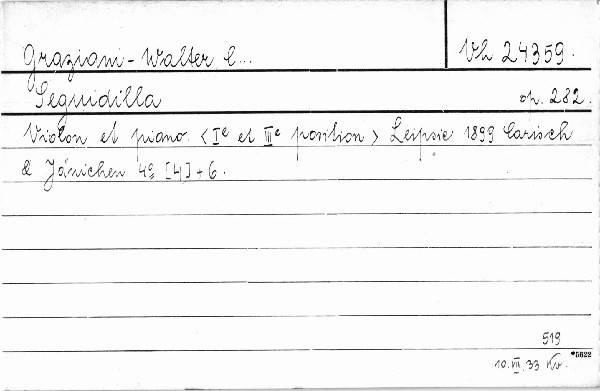 Graziani-Walter C... Vh 24359.
Seguidilla op. 282.
Violon et piano. <Ie et IIIe position> Leipsic 1899 Carisch
& Jänichen 4o [4]+6.
519
*5622
10.VII.33 Kv.